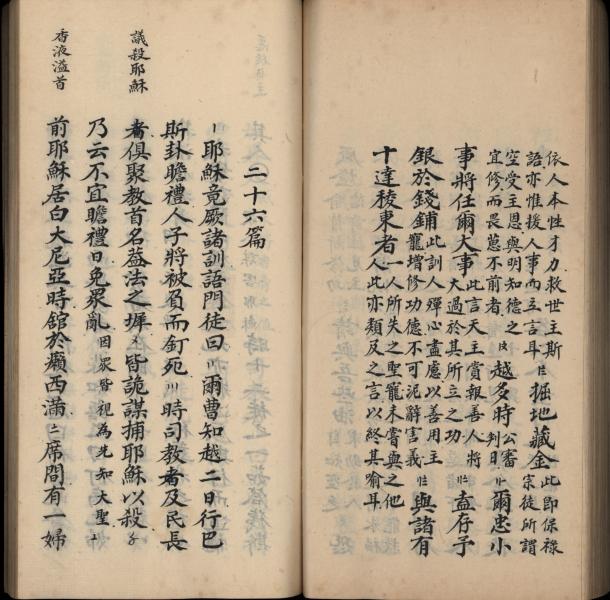 依人本性才力救世主斯
語亦惟援人事而立言耳註掘地藏金此即保祿
空受主恩與明知德之宗徒所謂
宜修而畏葸不前者註越多時公審判日註爾忠小
事將任爾大事此言天主賞報善人將大過於其所立之功註盍存予
銀於錢鋪此訓人殫心盡慮以善用主寵增修功德不可泥辭害義註與諸有
十達稜東者一人所失之聖寵未嘗與之他人此亦類及之言以終其喻耳
二十六篇
耶穌竟厥諸訓語門徒曰爾曹知越二日行巴
斯卦瞻禮人子將被負而釘死時司教者及民長
者俱聚教首名葢法之墀皆詭謀捕耶穌以殺
議殺耶穌
乃云不宜瞻禮日免眾亂因眾皆視為先知大聖
前耶穌居白大尼亞時舘於癩西滿席間有一婦
香液溢首